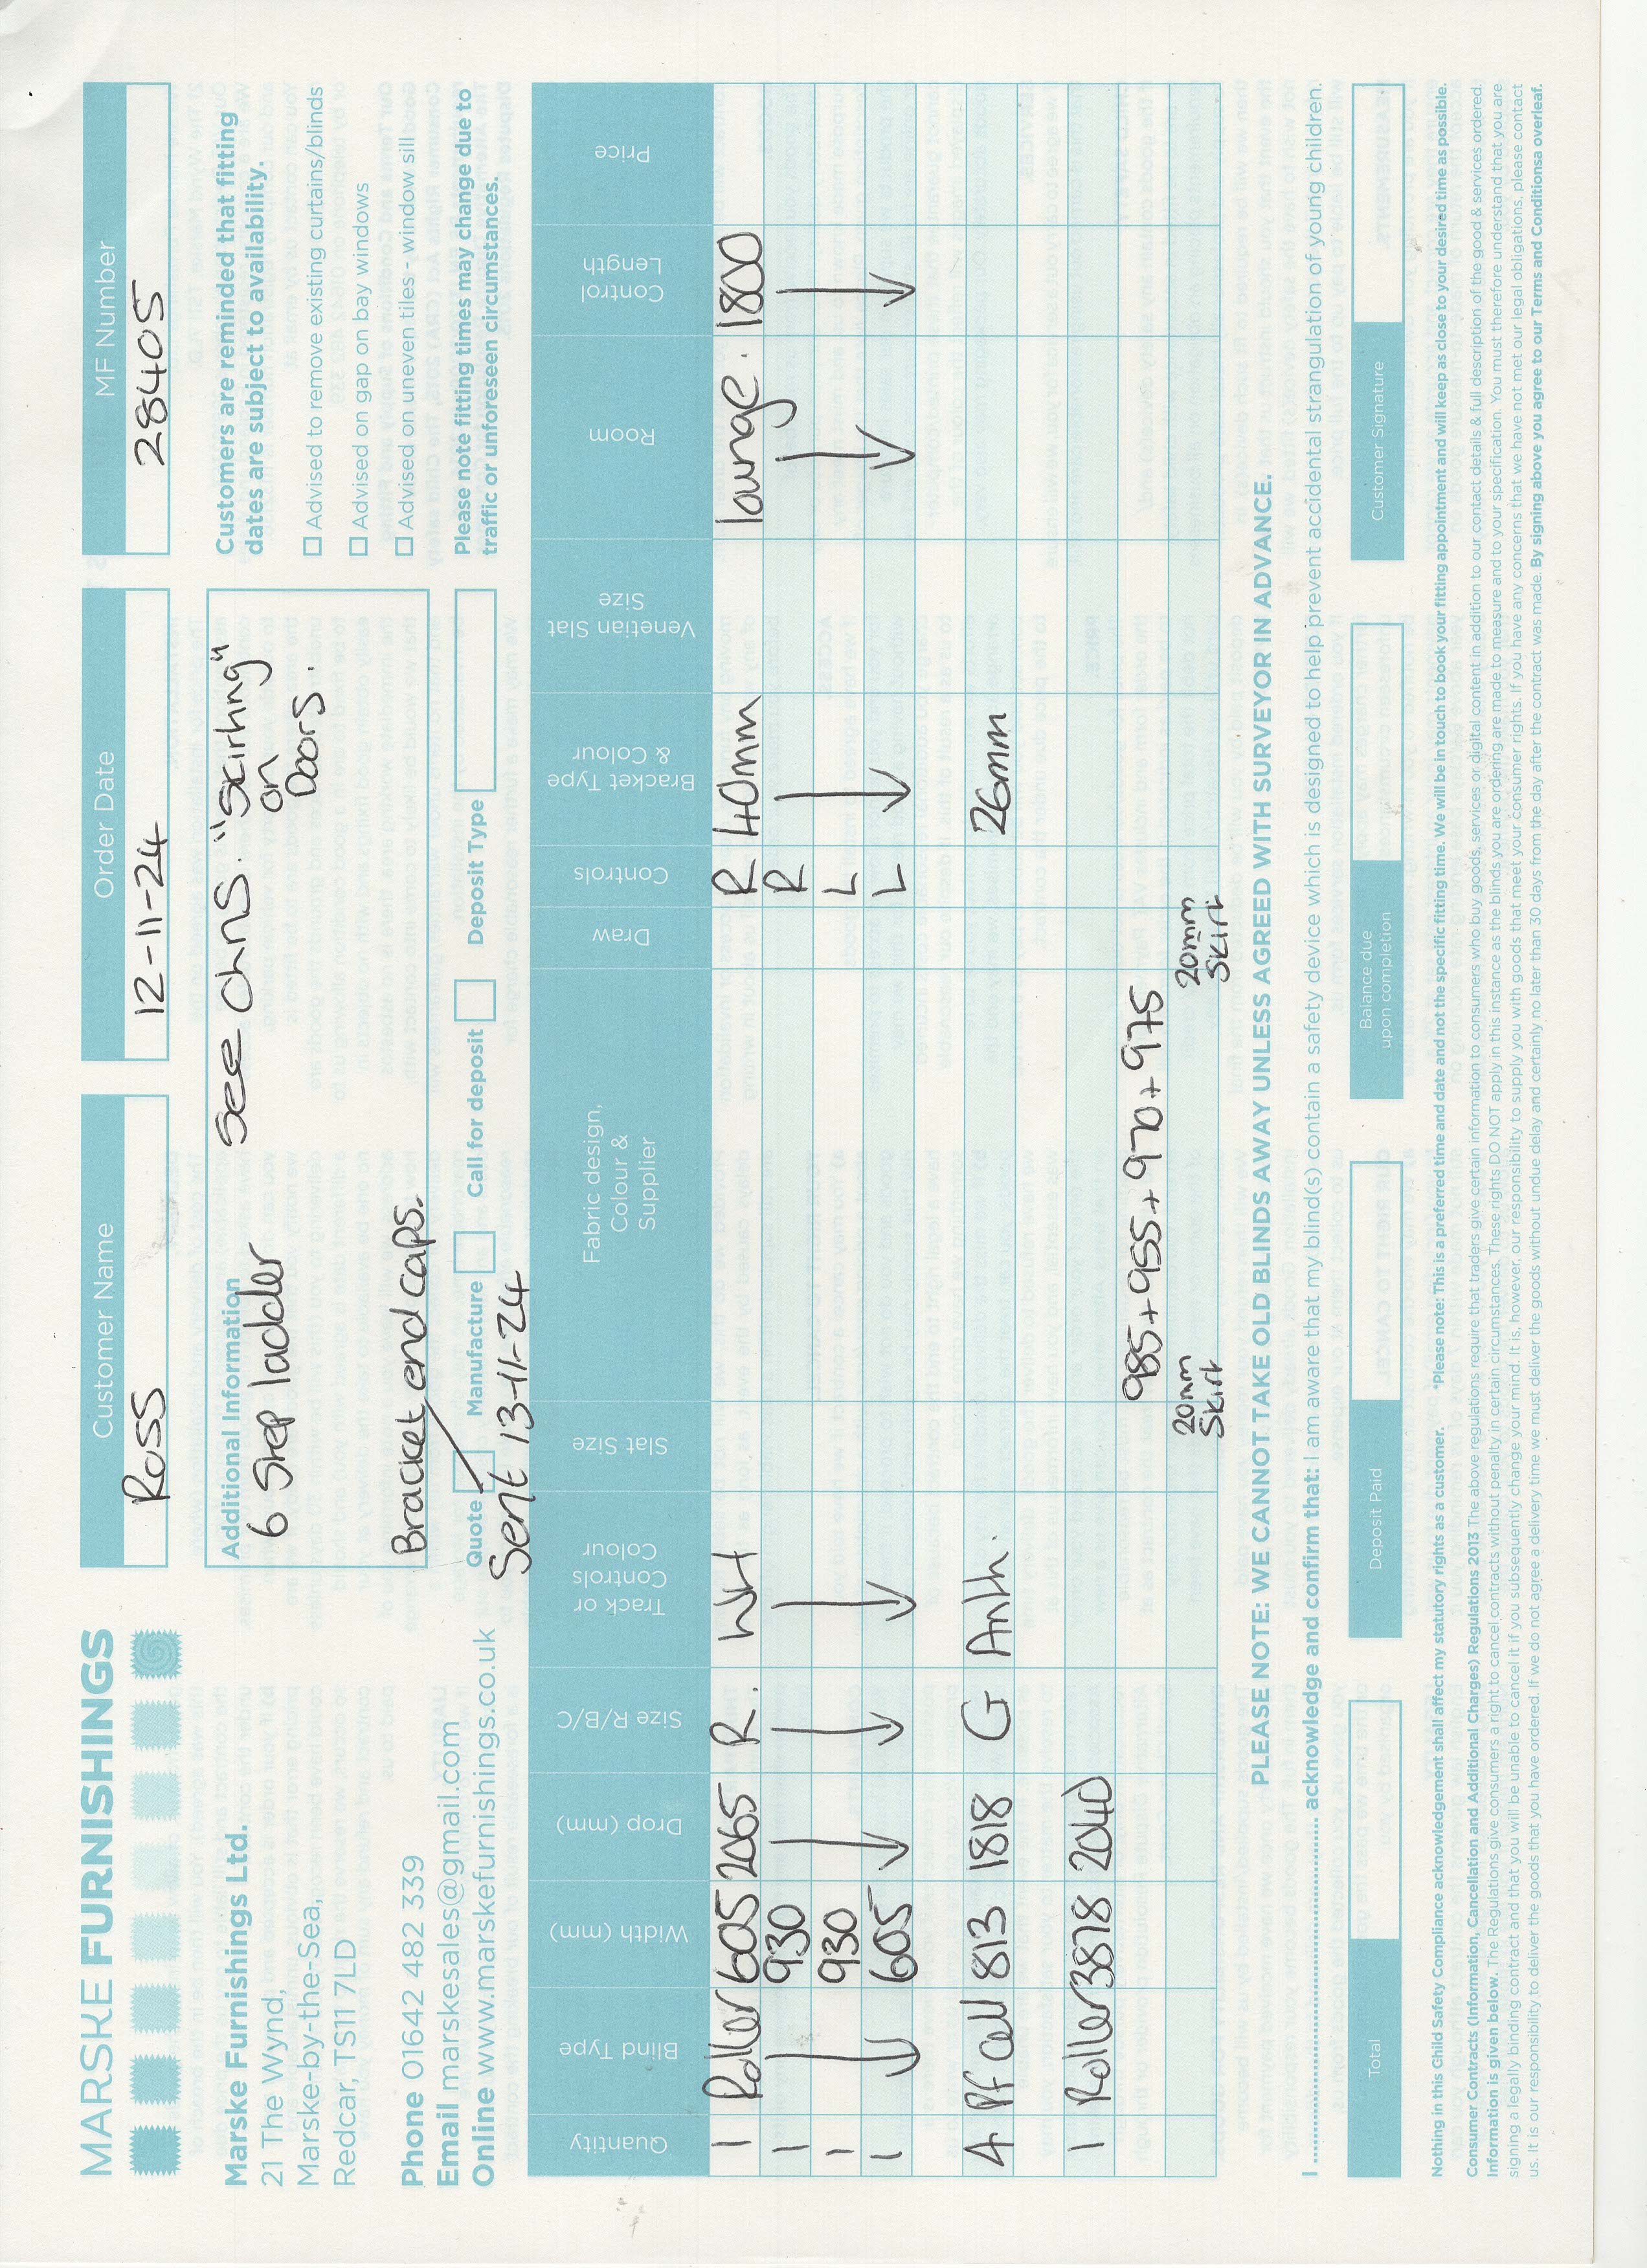 MARSKE FURNISHINGS
Marske Furnishings Ltd.
21 The Wynd,
Marske-by-the-Sea,
Redcar, TS11 7LD
Phone 01642 482 339
Email marskesales@gmail.com
Online www.marskefurnishings.co.uk
Customer Name
Ross
Order Date
12-11-24
MF Number
28405
Additional Information
6 Step ladder
See Chns. "Skirting"
on
Doors.
Bracket end caps.
Quote Manufacture Call for deposit Deposit Type
Sent 13-11-24
Customers are reminded that fitting
dates are subject to availability.
Advised to remove existing curtains/blinds
Advised on gap on bay windows
Advised on uneven tiles - window sill
Please note fitting times may change due to
traffic or unforeseen circumstances.
Quantity Blind Type Width (mm) Drop (mm) Size R/B/C Track or Controls Colour Slat Size Fabric design, Colour & Supplier Draw Controls Bracket Type & Colour Venetian Slat Size Room Control Length Price
1 Roller 605 2065 R. WH R 40mm lounge. 1800
1 930 R
1 930 L
1 605 L
4 Pf Cell 813 1818 G Anth. 26mm
1 Roller 3878 2040
985+955+970+975
20mm
Skirt
20mm
Skirt
PLEASE NOTE: WE CANNOT TAKE OLD BLINDS AWAY UNLESS AGREED WITH SURVEYOR IN ADVANCE.
I .......... acknowledge and confirm that: I am aware that my blind(s) contain a safety device which is designed to help prevent accidental strangulation of young children.
Total
Deposit Paid
Balance due
upon completion
Customer Signature
Nothing in this Child Safety Compliance acknowledgement shall affect my statutory rights as a customer. *Please note: This is a preferred time and date and not the specific fitting time. We will be in touch to book your fitting appointment and will keep as close to your desired time as possible.
Consumer Contracts (Information, Cancellation and Additional Charges) Regulations 2013 The above regulations require that traders give certain information to consumers who buy goods, services or digital content in addition to our contact details & full description of the good & services ordered.
Information is given below. The Regulations give consumers a right to cancel contracts without penalty in certain circumstances. These rights DO NOT apply in this instance as the blinds you are ordering are made to measure and to your specification. You must therefore understand that you are
signing a legally binding contract and that you will be unable to cancel if you subsequently change your mind. It is, however, our responsibility to supply you with goods that meet your consumer rights. If you have any concerns that we have not met our legal obligations, please contact
us. It is our responsibility to deliver the goods that you have ordered. If we do not agree a delivery time we must deliver the goods without undue delay and certainly no later than 30 days from the day after the contract was made. By signing above you agree to our Terms and Conditionsa overleaf.